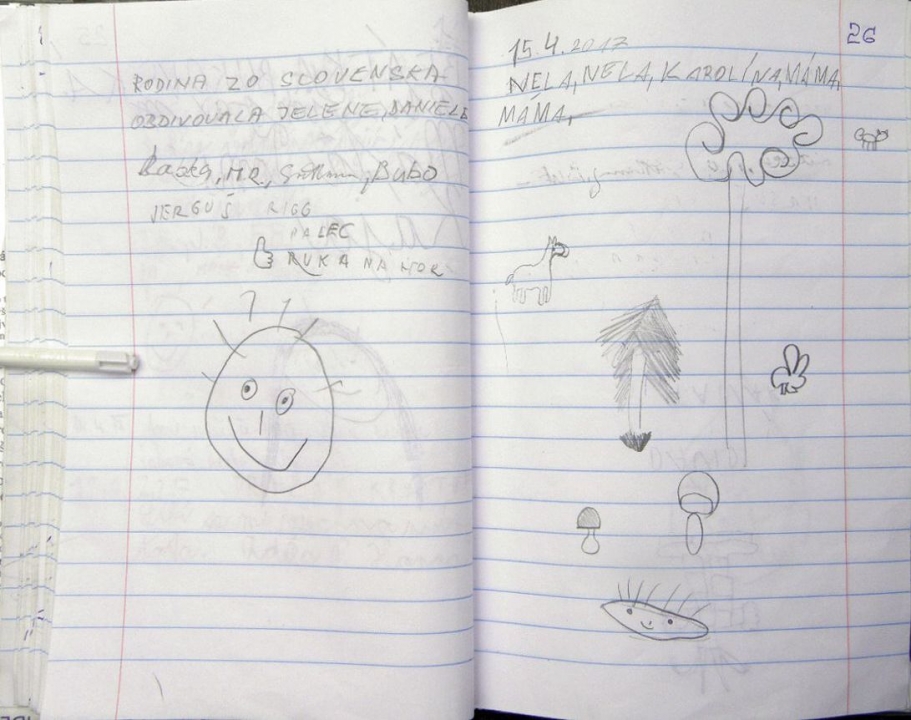 RODINA ZO SLOVENSKA
OBDIVOVALA JELENE, DANIELE
Bubo
JERGUŠ RIGG
PALEC
RUKA NA
26
15.4.2017
NELA, NELA, KAROLÍNA, MÁMA
MÁMA,